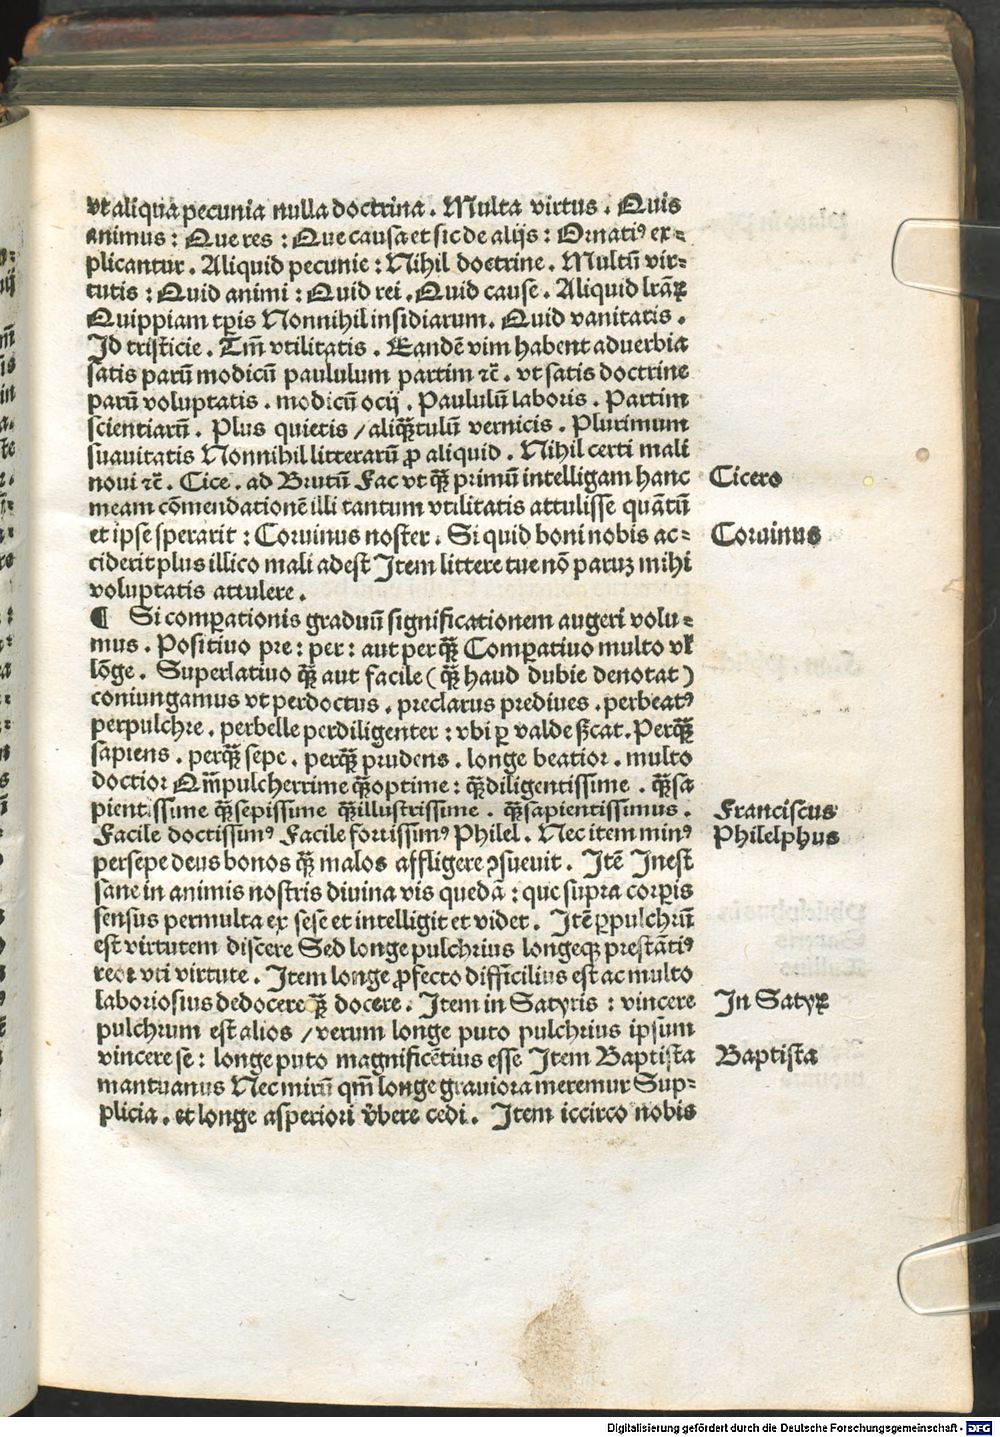 vt aliqua pecunia nulla doctrina. Multa virtus. Quis
animus: Que res: Que causa et sic de alijs: Ornatiꝰ ex⸗
plicantur. Aliquid pecunie: Nihil doctrine. Multū vir⸗
tutis: Quid animi: Quid rei. Quid cause. Aliquid lr̄aꝝ
Quippiam tꝑis Nonnihil insidiarum. Quid vanitatis.
Id tristicie. Tm̄ vtilitatis. Eandē vim habent aduerbia
satis parū modicū paululum partim ⁊c̄. vt satis doctrine
parū voluptatis. modicū ocij. Paululū laboris. Partim
scientiarū. Plus quietis / aliqꝫ̄tulū vernicis. Plurimum
suauitatis Nonnihil litterarū ꝓ aliquid. Nihil certi mali
noui ⁊c̄. Cice. ad Brutū Fac vt qꝫ̄ primū intelligam hanc
Cicero
meam cōmendationē illi tantum vtilitatis attulisse quātū
et ipse sperarit: Coruinus noster. Si quid boni nobis ac⸗
Coruinus
ciderit plus illico mali adest Item littere tue nō paruꝫ mihi
voluptatis attulere.
¶ Si comꝑationis graduū significationem augeri volu⸗
mus. Positiuo pre: per: aut per qꝫ̄ Comꝑatiuo multo vꝉ
lōge. Superlatiuo qꝫ̄ aut facile (qꝫ̄ haud dubie denotat)
coniungamus vt perdoctus. preclarus prediues. perbeatꝰ
perpulchre. perbelle perdiligenter: vbi ꝑ valde sꝫcat. Perqꝫ̄
sapiens. perqꝫ̄ sepe. perqꝫ̄ prudens. longe beatior. multo
doctior Qm̄pulcherrime qꝫ̄optime: qꝫ̄diligentissime. qꝫ̄sa
pientissime qꝫ̄sepissime qꝫ̄illustrissime. qꝫ̄sapientissimus.
Franciscus
Facile doctissimꝰ Facile fortissimꝰ Philel. Nec item minꝰ
Philelphus
persepe deus bonos qꝫ̄ malos affligere ꝯsueuit. Itē Inest
sane in animis nostris diuina vis quedā: que supra corꝑis
sensus permulta ex sese et intelligit et videt. Itē ꝑpulchrū
est virtutem discere Sed longe pulchrius longeqꝫ prestātiꝰ
recte vti virtute. Item longe ꝓfecto difficilius est ac multo
laboriosius dedocere qꝫ̄ docere. Item in Satyris: vincere
In Satyꝝ
pulchrum est alios / verum longe puto pulchrius ipsum
vincere se: longe puto magnificētius esse Item Baptista
Baptista
mantuanus Nec mirū qm̄ longe grauiora meremur Sup⸗
plicia. et longe asperiori v̄bere cedi. Item iccirco nobis
Digitalisierung gefördert durch die Deutsche Forschungsgemeinschaft - DFG